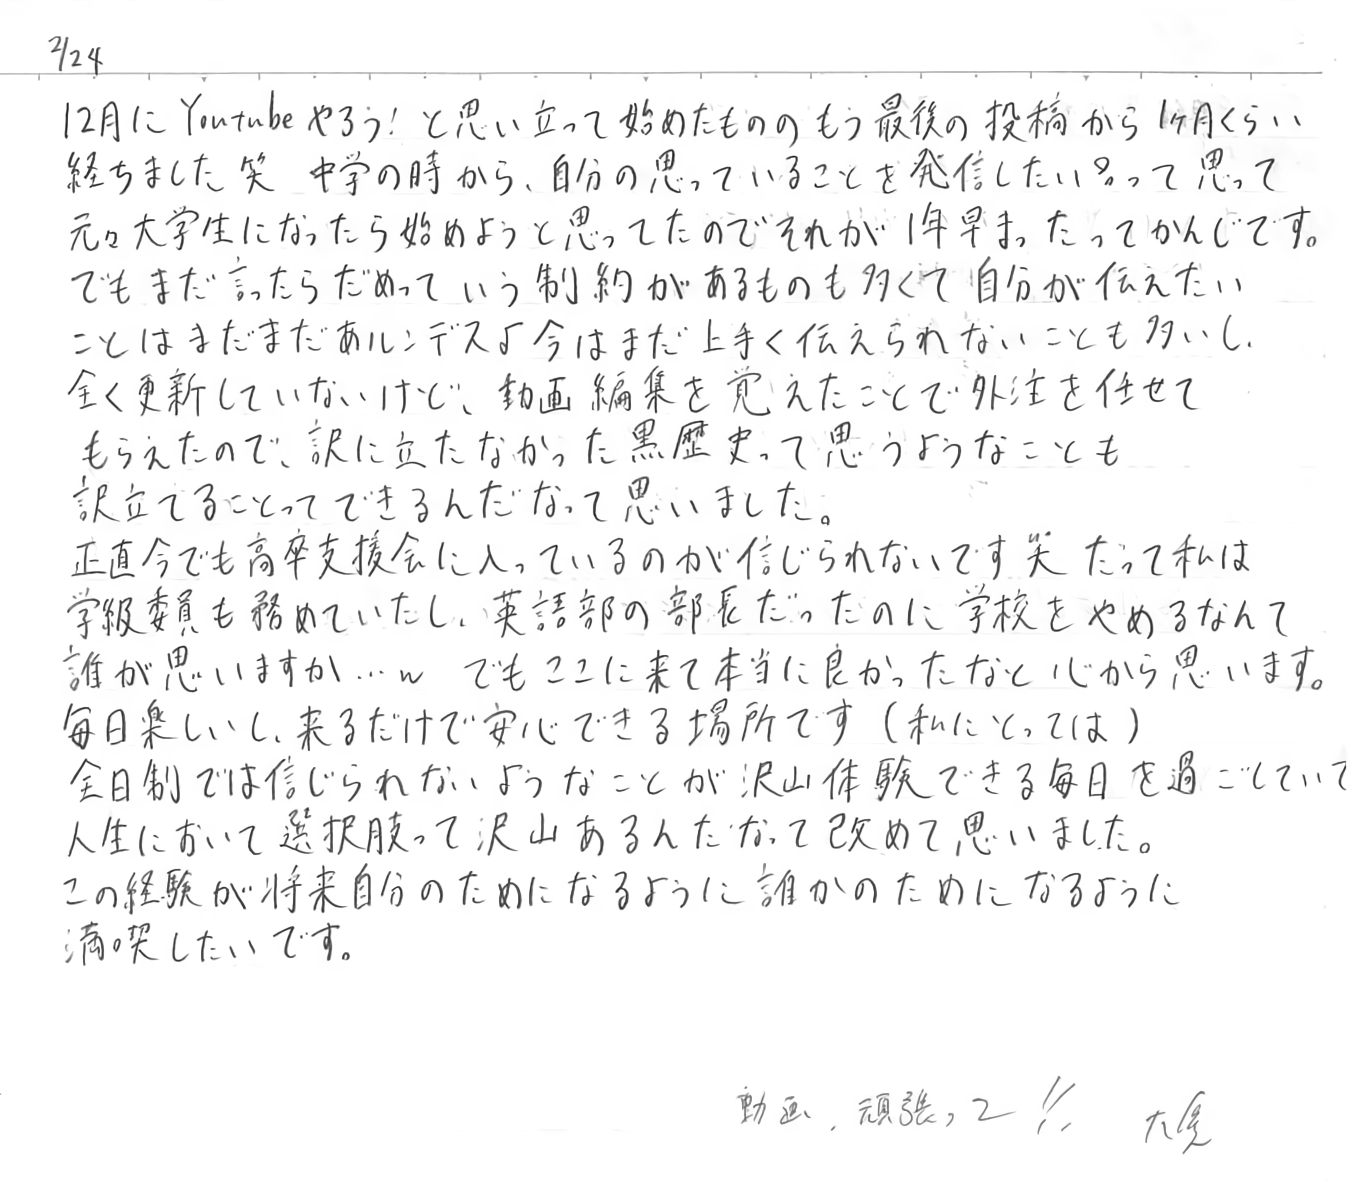 2/24
12月に Youtubeやろう! と思い立って始めたもののもう最後の投稿から1ヶ月くらい
経ちました笑 中学の時から、自分の思っていることを発信したい??って思って
元々大学生になったら始めようと思ってたのでそれが1年早まったってかんじです。
でもまだ言ったらだめっていう制約があるものも多くて自分が伝えたい
ことはまだまだあルンデス♪今はまだ上手く伝えられないことも多いし、
全く更新していないけど、動画編集を覚えたことで外注を任せて
もらえたので、訳に立たなかった黒歴史って思うようなことも
訳立てることってできるんだなって思いました。
正直今でも高卒支援会に入っているのが信じられないです笑 だって私は
学級委員も務めていたし、英語部の部長だったのに学校をやめるなんて
誰が思いますか…w でもここに来て本当に良かったなと心から思います。
毎日楽しいし、来るだけで安心できる場所です(私にとっては)
全日制では信じられないようなことが沢山体験できる毎日を過ごしていて
人生において選択肢って沢山あるんだなって改めて思いました。
この経験が将来自分のためになるように誰かのためになるように
満喫したいです。
動画、頑張って!!